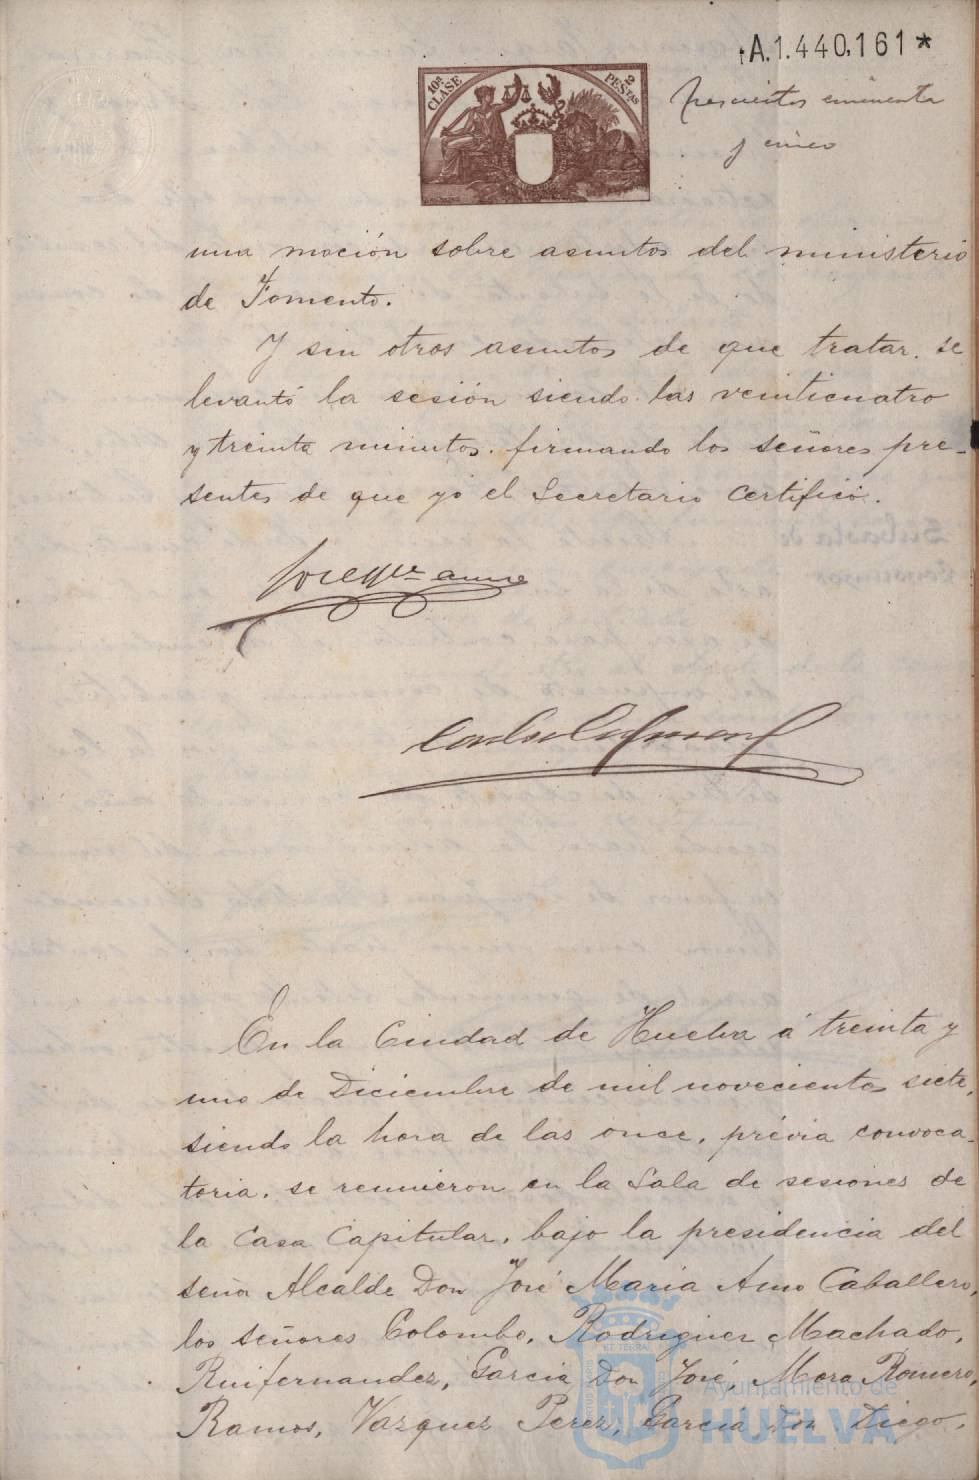 A.1.440.161*
10ª CLASE
2 PESTAS
y cinco
una moción sobre asuntos del ministerio
de Fomento.
Y sin otros asuntos de que tratar. se
levantó la sesión siendo las veinticuatro
y treinta minutos. firmando los señores pre-
sentes de que yo el Secretario certifico.
En la Ciudad de Huelva á treinta y
uno de Diciembre de mil novecientos siete,
siendo la hora de las once, prévia convoca-
toria. se reunieron en la Sala de sesiones de
la Casa Capitular, bajo la presidencia del
señor Alcalde Don José Maria Amo Caballero,
los señores Colombo, Rodriguez Machado,
Ruifernandez, Garcia Don José, Mora Romero,
Ramos, Vazquez Perez, Garcia Don Diego,
Ayuntamiento de
HUELVA